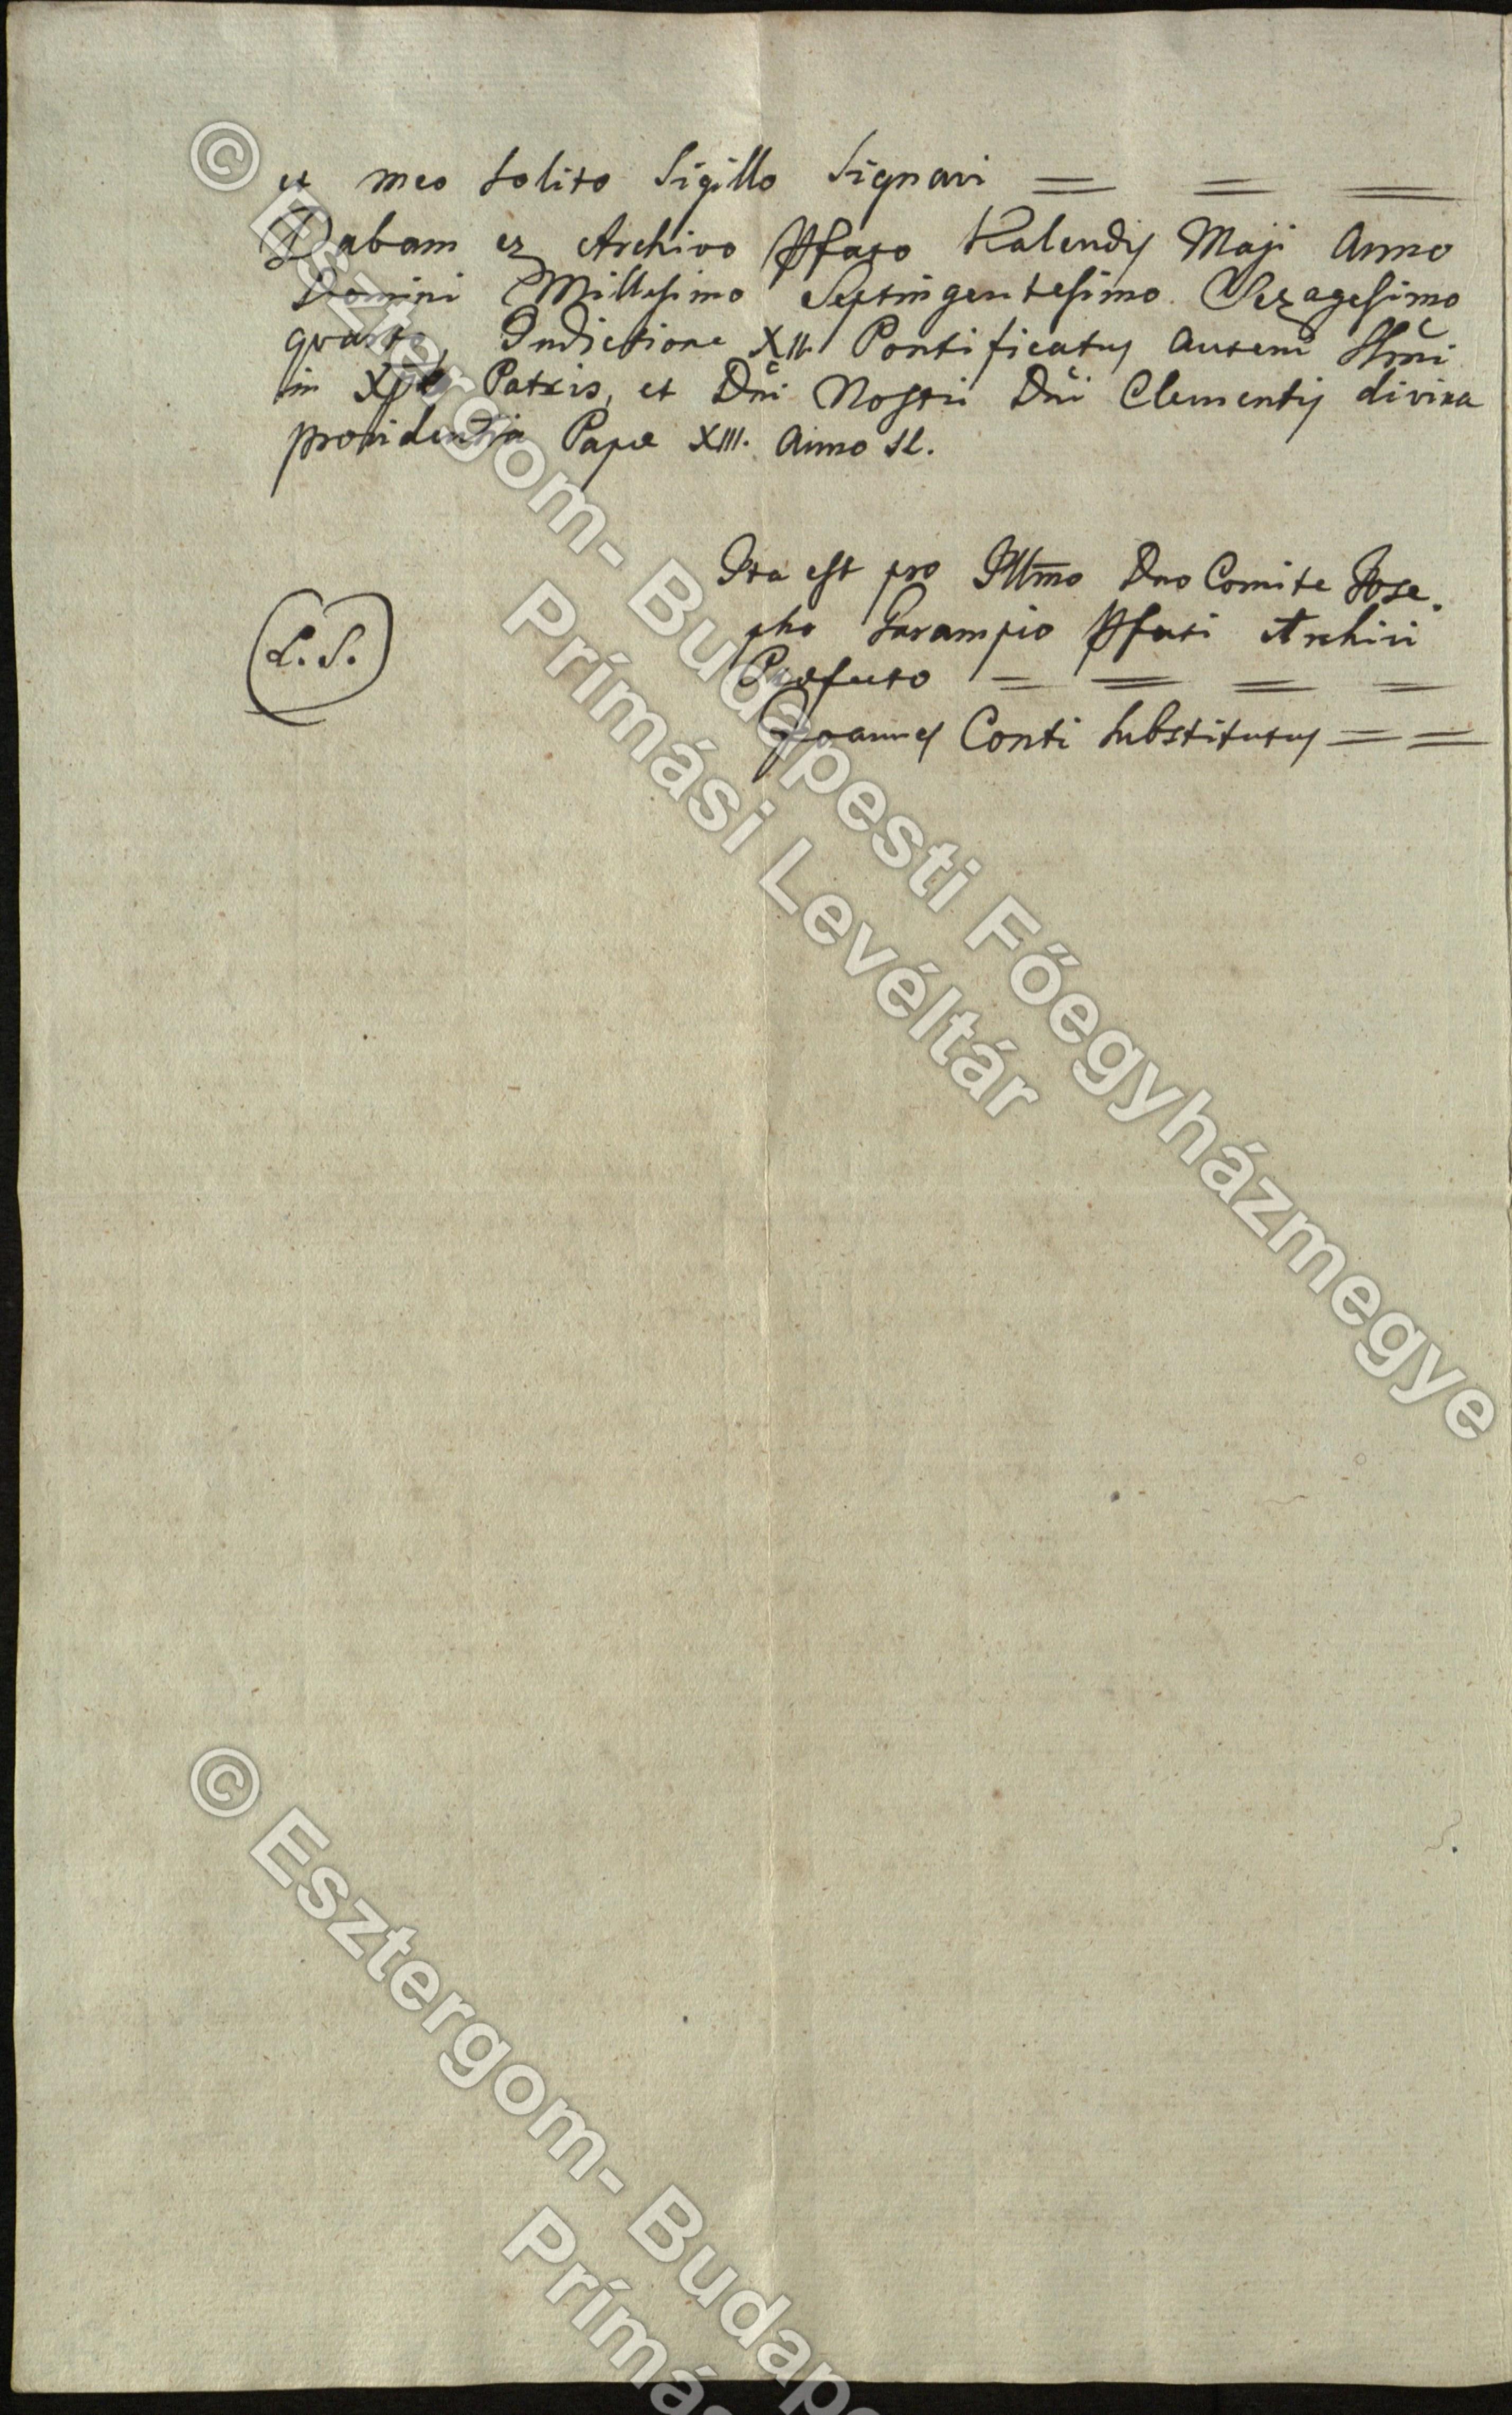 et meo solito Sigillo Signavi = = =
Dabam ex Archivo pfato Kalendis Maji Anno
Domini Millesimo Septingentesimo Sexagesimo
quarto, Indictione XII. Pontificatus autem Ssmi
in Xpo Patris, et Dni Nostri Dni Clementis divina
providentia Papæ XIII. Anno
Ita est pro Illmo Dno Comite Jose-
pho Garampio pfati Archivi
Præfecto = = = =
L. S.
Joannes Conti Substitutus = =
© Esztergom- Budapesti Főegyházmegye
Prímási Levéltár
© Esztergom- Budape
Prímás